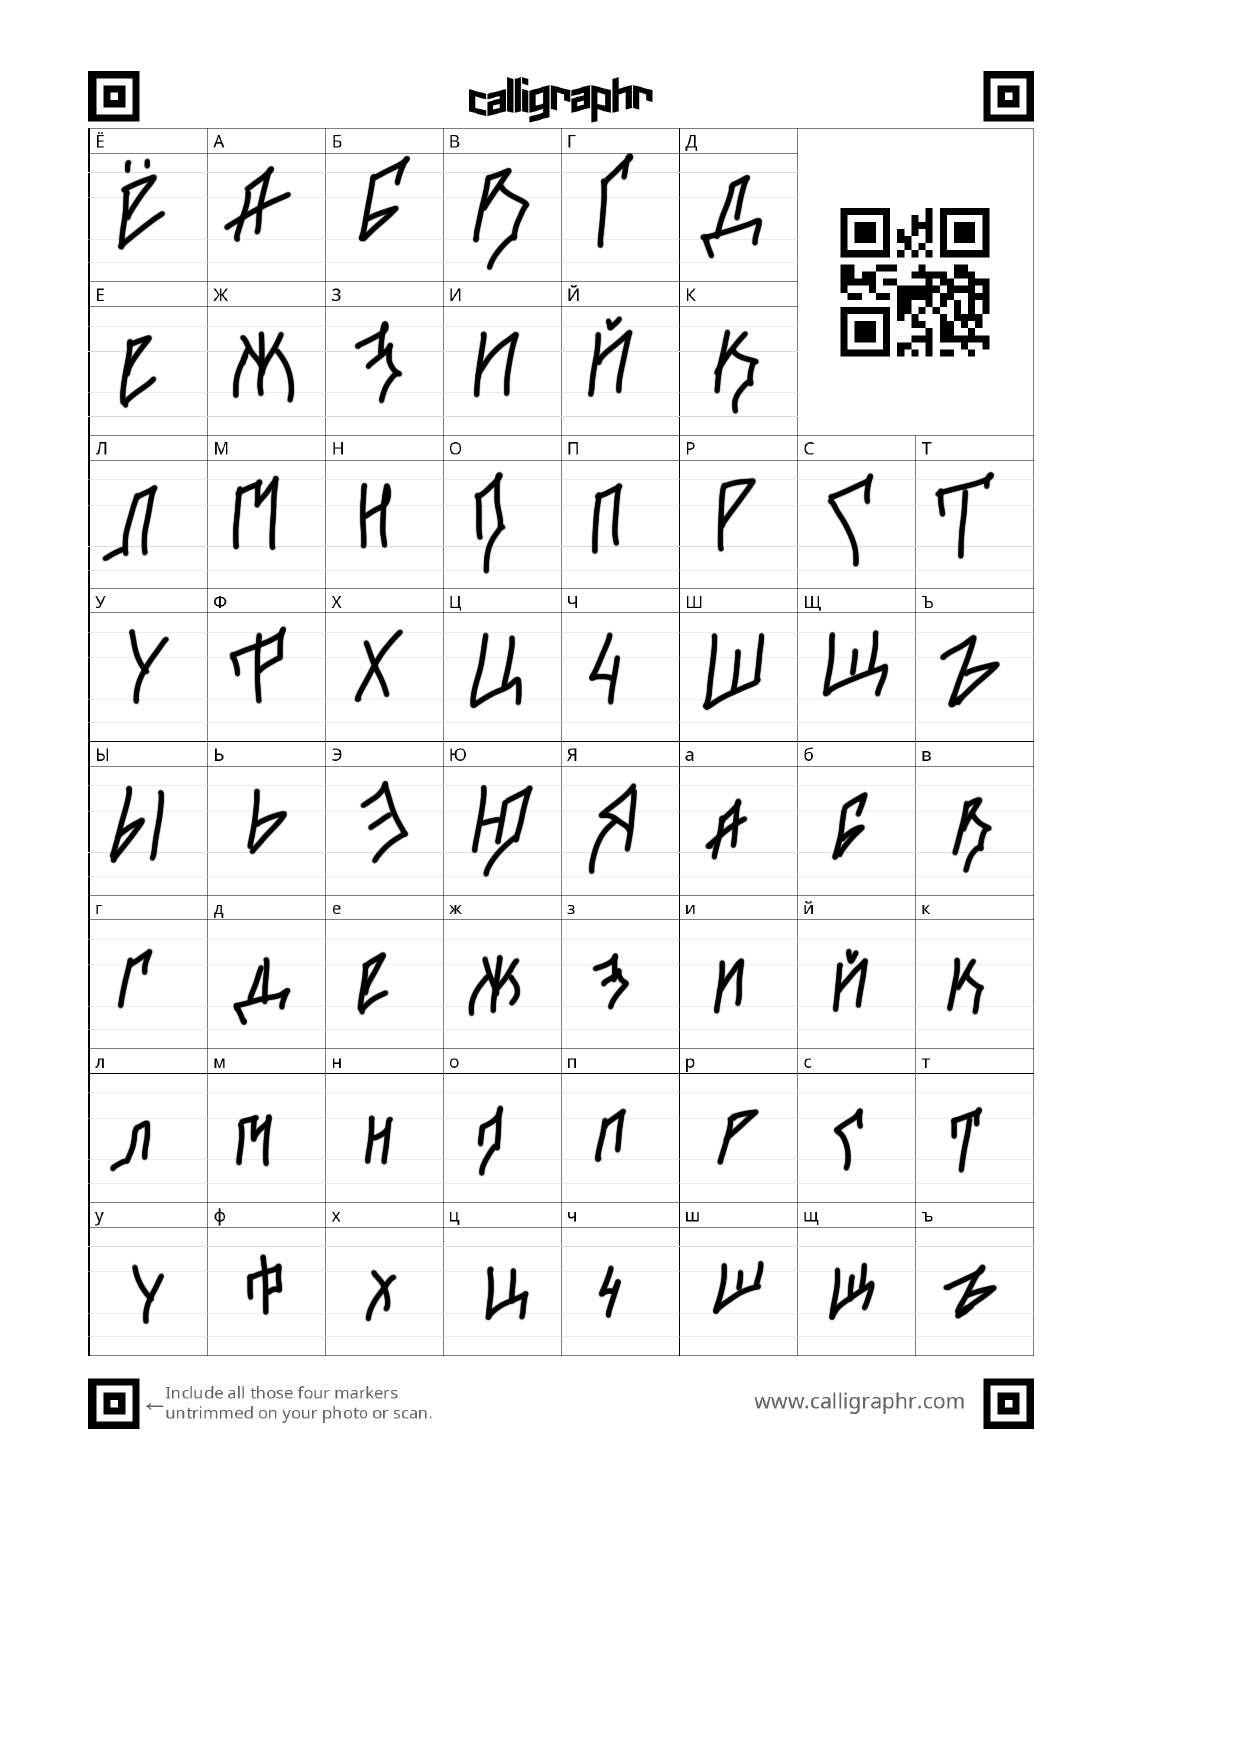 calligraphr
Ё А Б В Г Д
Ё А Б В Г Д
Е Ж З И Й К
Е Ж З И Й К
Л М Н О П Р С Т
Л М Н О П Р С Т
У Ф Х Ц Ч Ш Щ Ъ
У Ф Х Ц Ч Ш Щ Ъ
Ы Ь Э Ю Я а б в
Ы Ь Э Ю Я а б в
г д е ж з и й к
г д е ж з и й к
л м н о п р с т
л м н о п р с т
у ф х ц ч ш щ ъ
у ф х ц ч ш щ ъ
←Include all those four markers
untrimmed on your photo or scan.
www.calligraphr.com